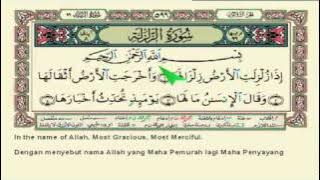 سُورَةُ الزَّلْزَلَةِ
بِسْمِ اللَّهِ الرَّحْمَٰنِ الرَّحِيمِ
إِذَا زُلْزِلَتِ الْأَرْضُ زِلْزَالَهَا وَأَخْرَجَتِ الْأَرْضُ أَثْقَالَهَا
وَقَالَ الْإِنسَانُ مَا لَهَا يَوْمَئِذٍ تُحَدِّثُ أَخْبَارَهَا
In the name of Allah, Most Gracious, Most Merciful.
Dengan menyebut nama Allah yang Maha Pemurah lagi Maha Penyayang